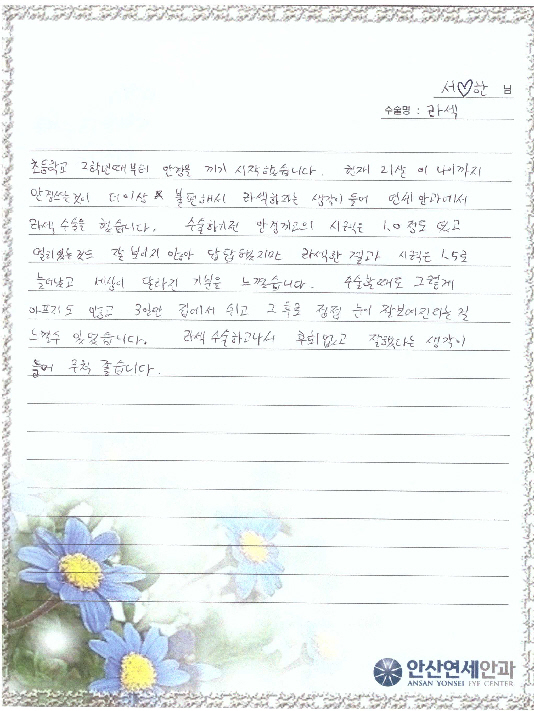 서♡한 님
수술명 : 라섹
초등학교 2학년때부터 안경을 끼기 시작했습니다. 현재 21살 이 나이까지
안경쓰는것이 더이상 불편해서 라섹하자는 생각이 들어 연세안과에서
라섹 수술을 했습니다. 수술하기전 안경끼고의 시력은 1.0 정도 였고
멀리있는것도 잘 보이지 않아 답답했지만 라섹한 결과 시력은 1.5로
늘어났고 세상이 달라진 기분을 느꼈습니다. 수술할때도 그렇게
아프지도 않고 3일만 집에서 쉬고 그 후로 점점 눈이 잘보여진다는 걸
느낄수 있었습니다. 라섹 수술하고나서 후회없고 잘했다는 생각이
들어 무척 좋습니다.
안산연세안과
ANSAN YONSEI EYE CENTER